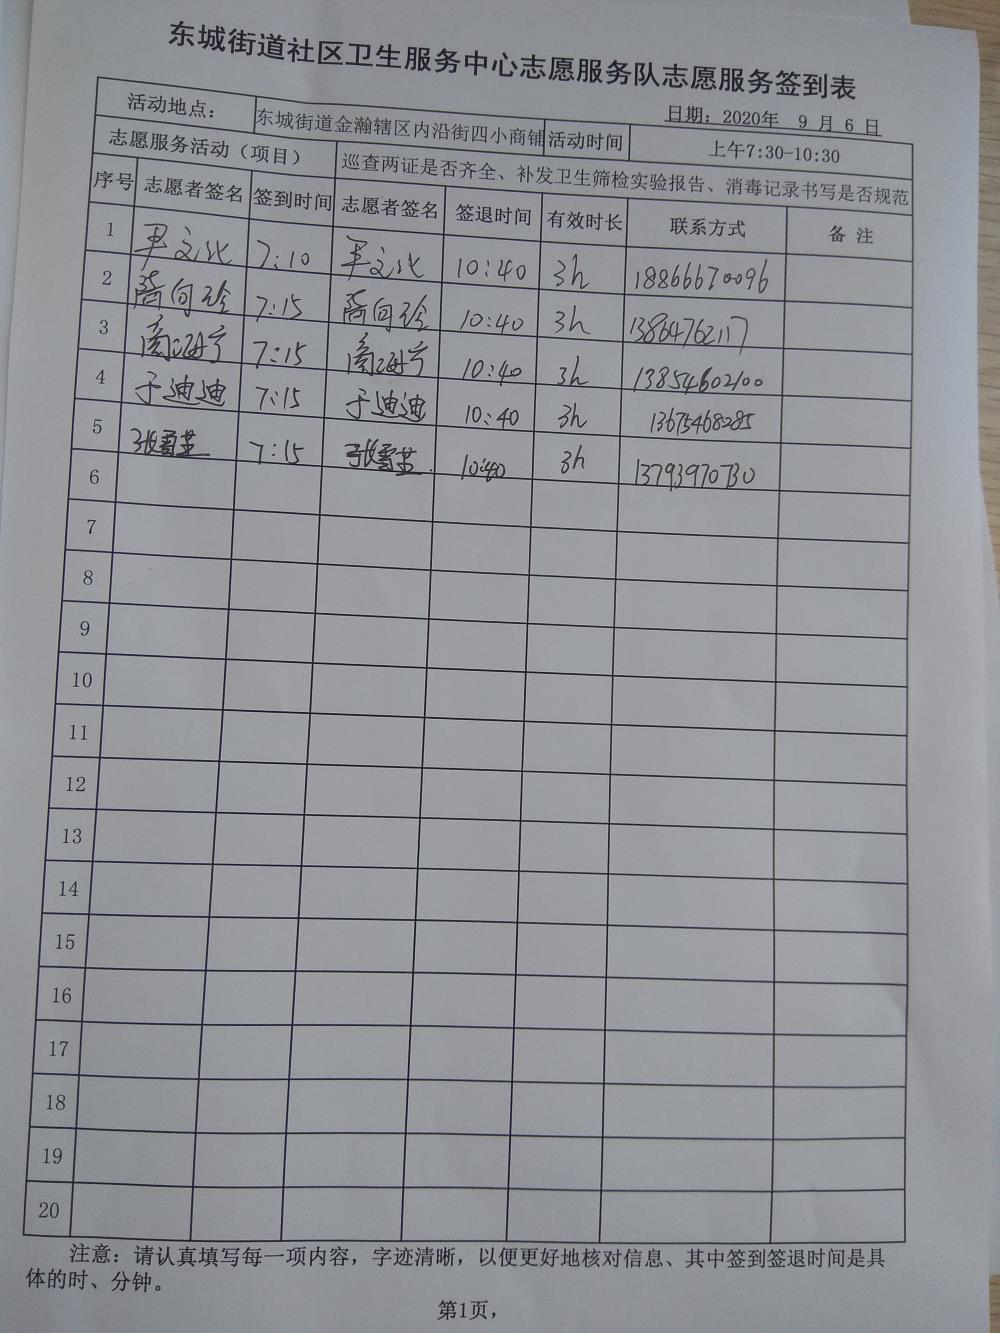 东城街道社区卫生服务中心志愿服务队志愿服务签到表
日期：2020年 9 月 6 日
活动地点： 东城街道金瀚辖区内沿街四小商铺 活动时间 上午7:30-10:30
志愿服务活动（项目） 巡查两证是否齐全、补发卫生筛检实验报告、消毒记录书写是否规范
序号 志愿者签名 签到时间 志愿者签名 签退时间 有效时长 联系方式 备 注
1 7:10 10:40 3h 18866670096
2 7:15 10:40 3h 13864762117
3 7:15 10:40 3h 13854602100
4 于迪迪 7:15 于迪迪 10:40 3h 13675468285
5 7:15 10:40 3h 13793970730
6
7
8
9
10
11
12
13
14
15
16
17
18
19
20
注意：请认真填写每一项内容，字迹清晰，以便更好地核对信息、其中签到签退时间是具
体的时、分钟。
第1页，